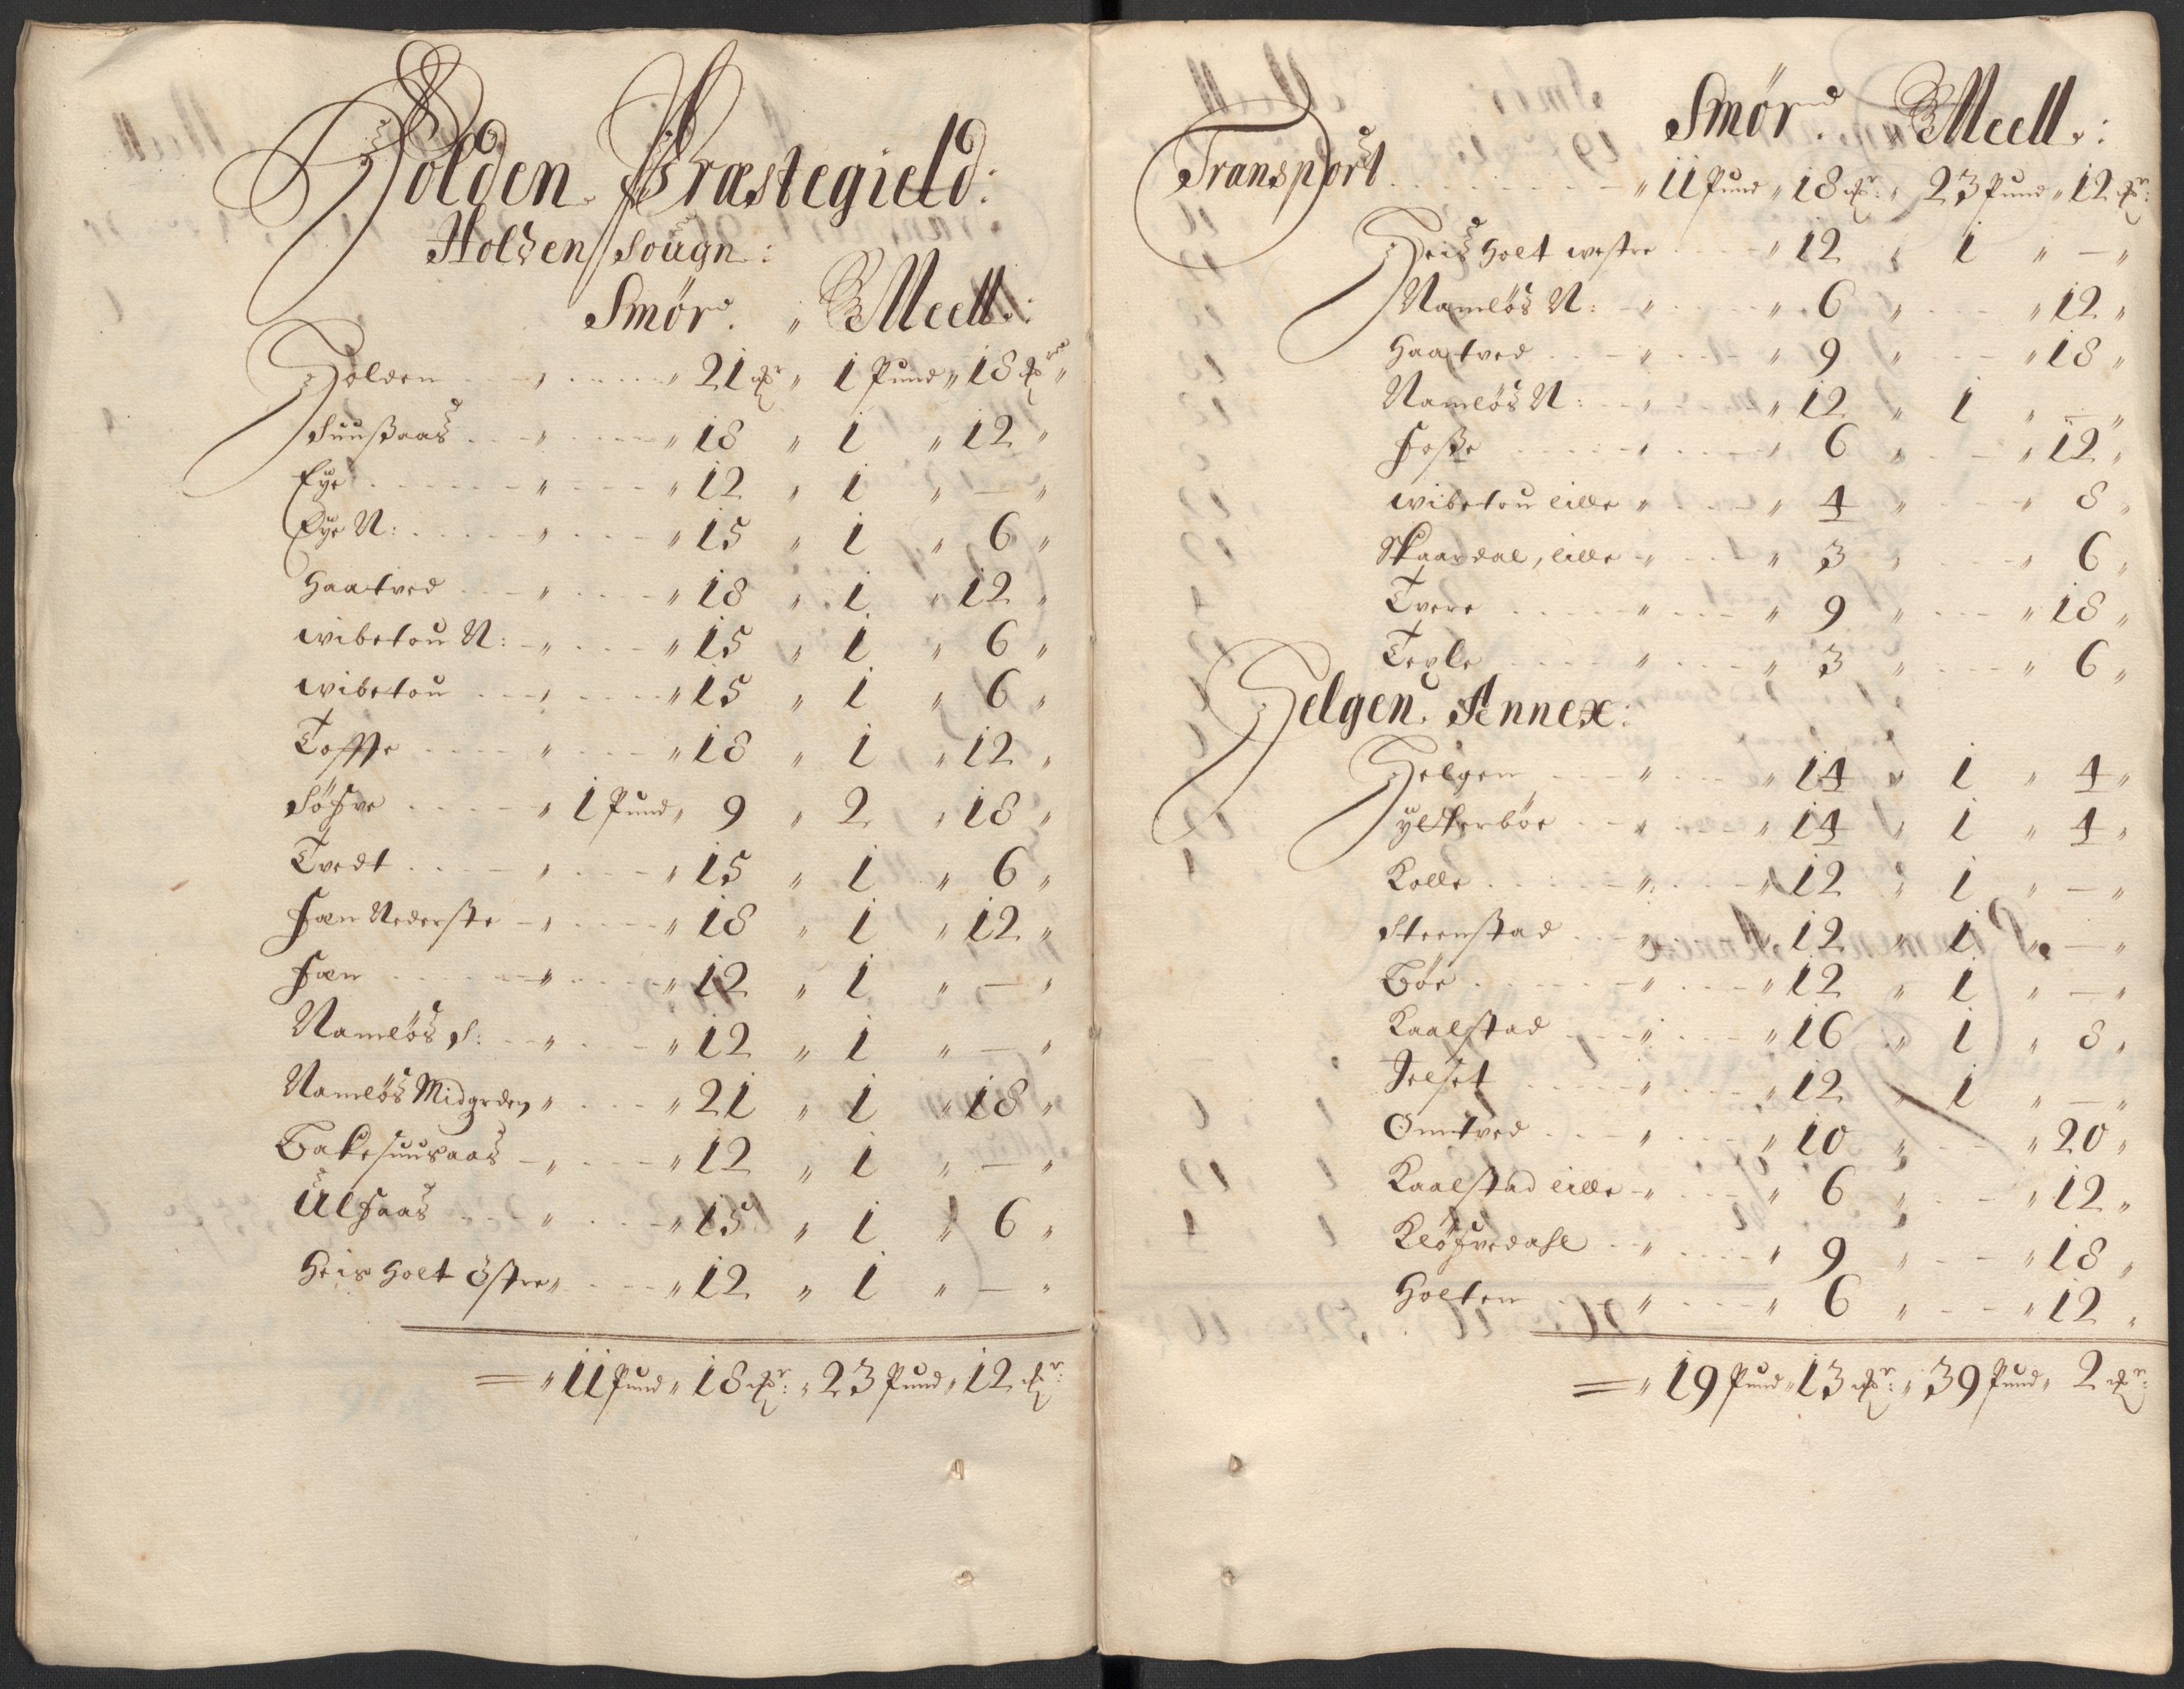 Holden Præstegield:
Holden Sougn:
Smör. " Meell:
Holden " 21 ℔r " 1 Pund " 18 ℔r "
Suußaas " " 18 " 1 " 12 "
Eye " " 12 " 1 " — "
Eye N: " " 15 " 1 " 6 "
Haatved " " 18 " 1 " 12 "
wibetou N: " " 15 " 1 " 6 "
wibetou " " 15 " 1 " 6 "
Toffte " " 18 " 1 " 12 "
Söfve " 1 Pund " 9 " 2 " 18 "
Tvedt " " 15 " 1 " 6 "
Fæn Nederste " " 18 " 1 " 12 "
Fæn " " 12 " 1 " — "
Namlös S: " " 12 " 1 " — "
Namlös Midgrden " " 21 " 1 " 18 "
Bakesuusaas " " 12 " 1 " — "
Ulfaas " " 15 " 1 " 6 "
Heisholt östre " " 12 " 1 " — "
= " 11 Pund " 18 ℔r: " 23 Pund " 12 ℔r:
Smör. Meell:
Transport " 11 Pund " 18 ℔r: " 23 Pund " 12 ℔r:
Heisholt westre " 12 " 1 " — "
Namlös N: " " 6 " " 12 "
Haatved " " 9 " " 18 "
Namlös N: " " 12 " 1 " — "
Foße " " 6 " " 12 "
wibetou lille " " 4 " " 8 "
Skaardal, lille " " 3 " " 6 "
Tvere " " 9 " " 18 "
Teple " " 3 " " 6 "
Helgen Annex:
Helgen " " 14 " 1 " 4 "
ytterböe " " 14 " 1 " 4 "
Kolle " " 12 " 1 " — "
Steenstad " " 12 " 1 " — "
Böe " " 12 " 1 " — "
Kaalstad " " 16 " 1 " 8 "
Jelset " " 12 " 1 " — "
Omtved " " 10 " " 20 "
Kaalstad lille " " 6 " " 12 "
Klöfvedahl " " 9 " " 18 "
Holten " " 6 " " 12 "
= " 19 Pund " 13 ℔r: " 39 Pund " 2 ℔r: